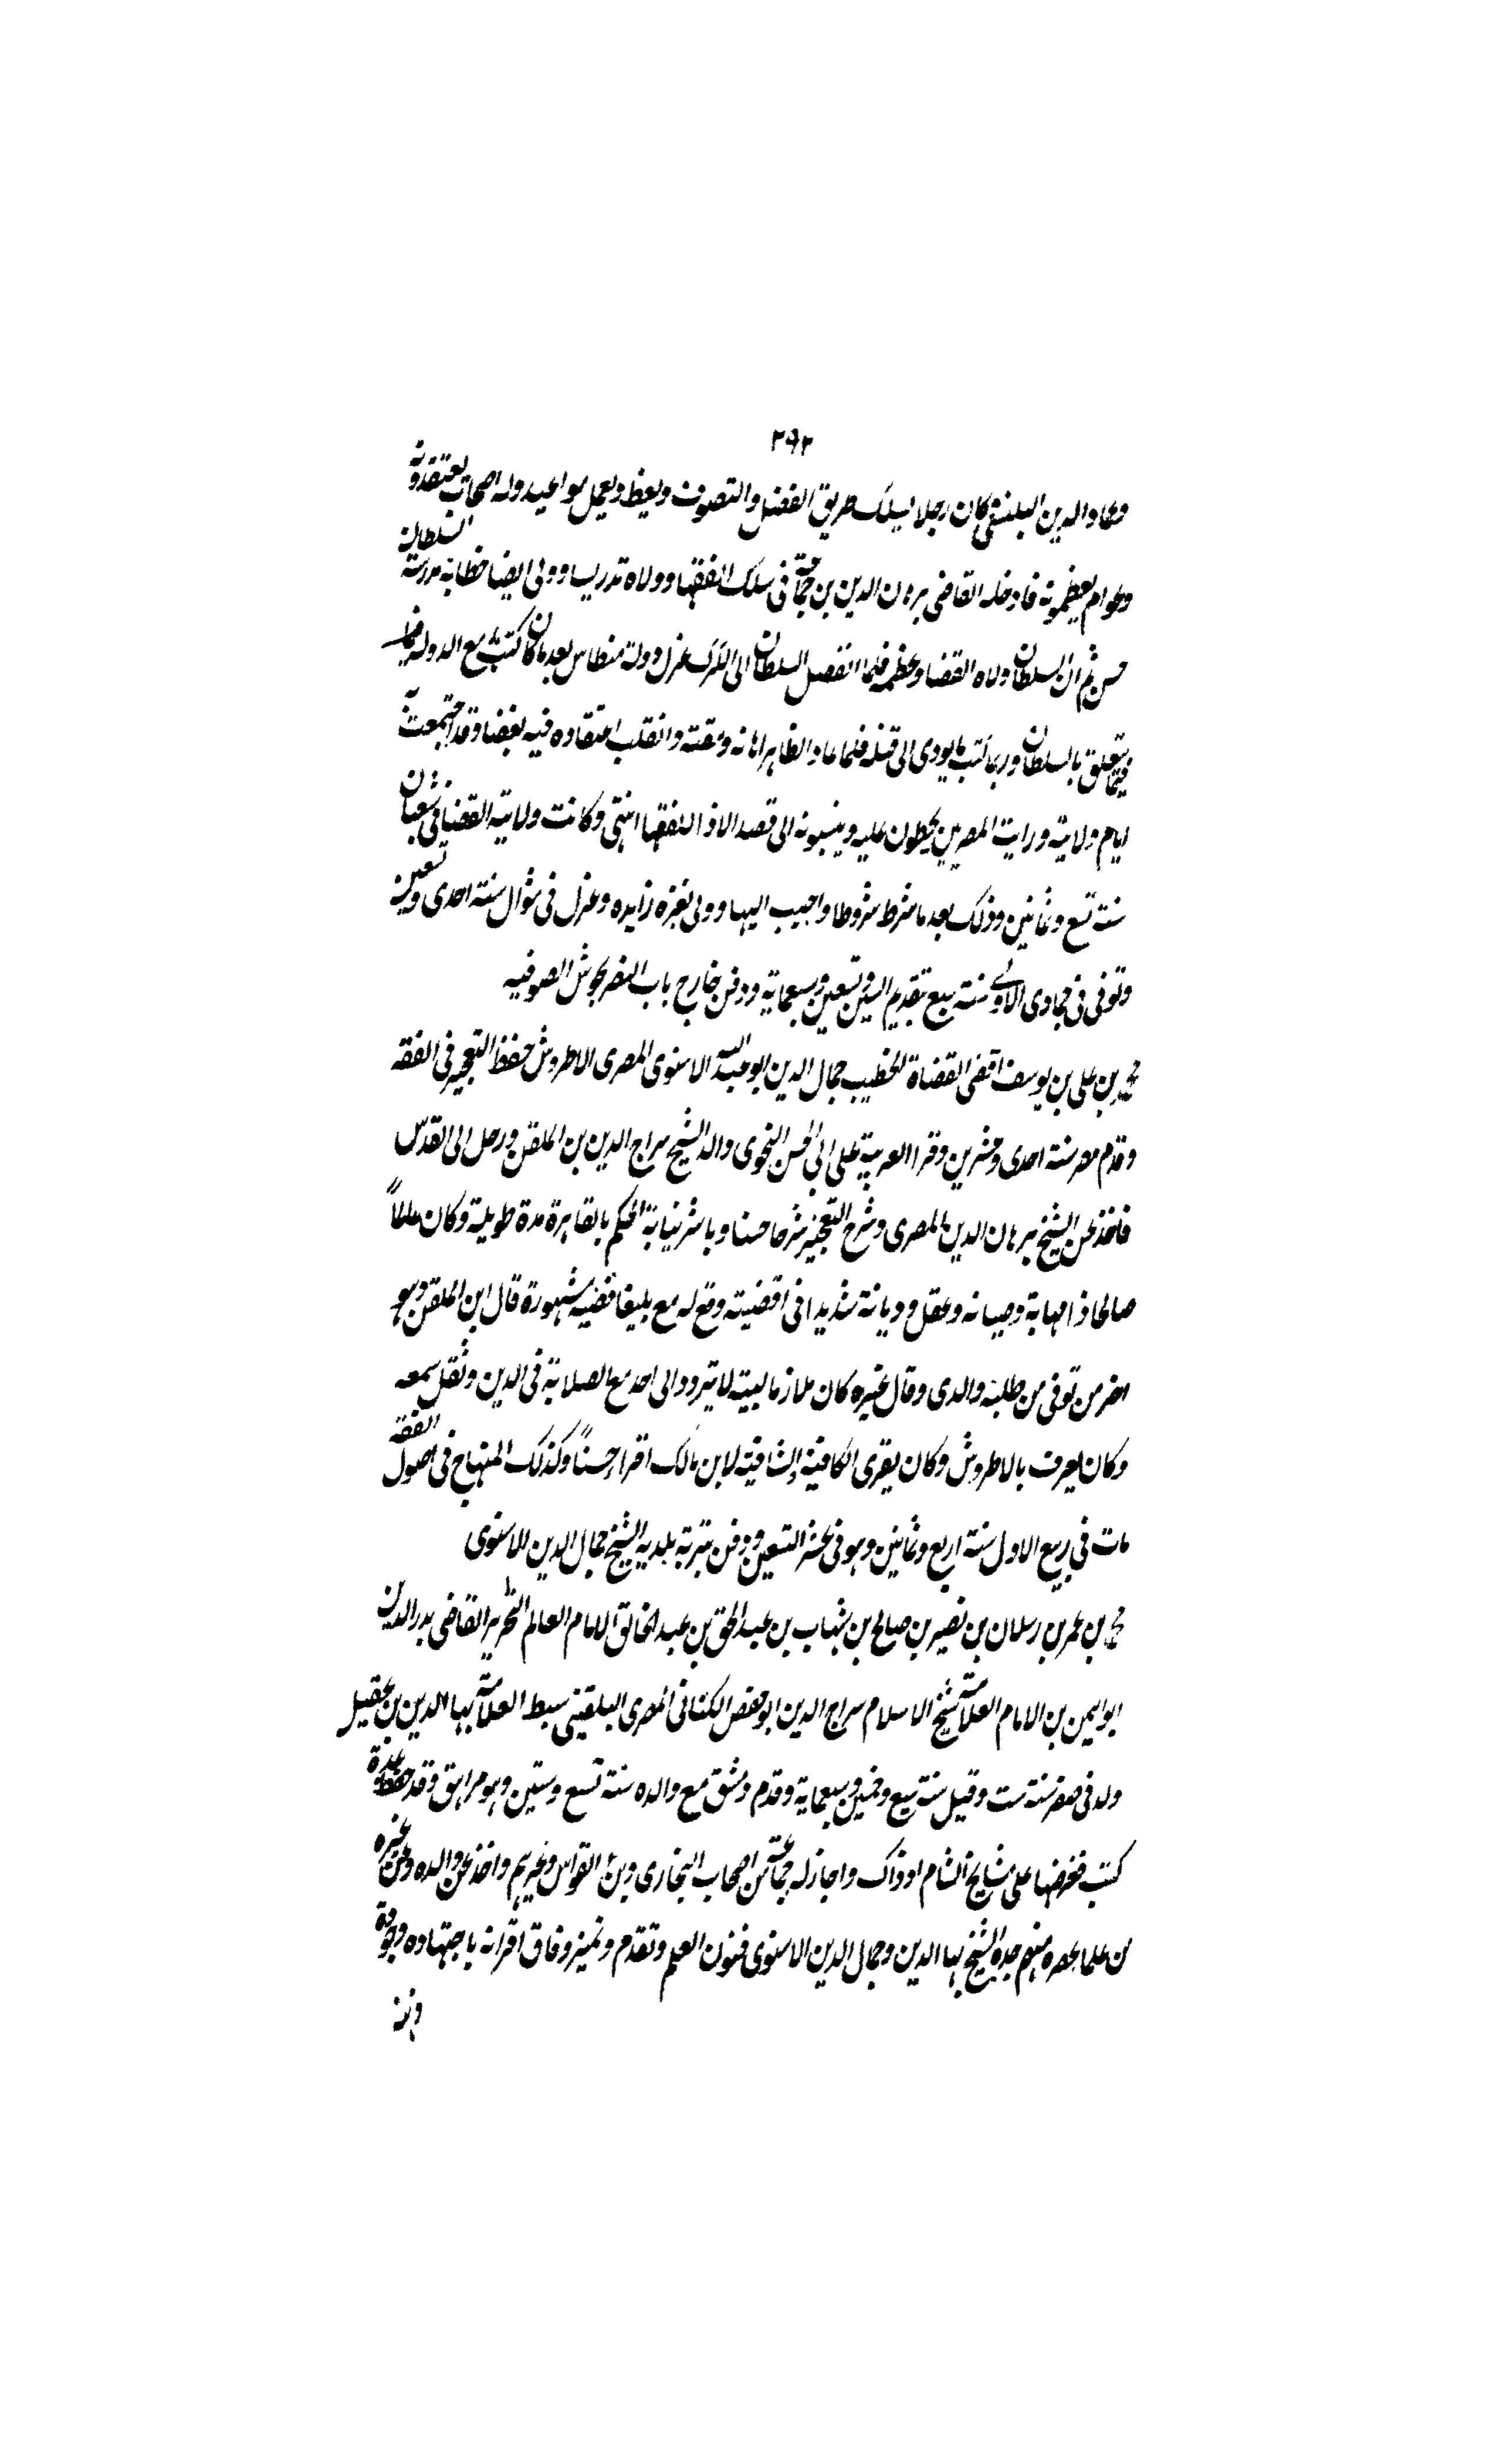 ٢٩٢
وعماد الدين البلقينى كان رجلا يسلك طريق الفضل والتصوف ويعظ ويعمل مواعيد وله اصحاب يعتقدونه
وعوام يعظمونه فادخله القاضى برهان الدين بن جماعة فى سلك الفقها وولاه تدريسا وولى ايضا خطابة مدرسة السلطان
حسن ثم ان السلطان ولاه القضا وعظمه فلما انفصل السلطان الى الكرك عزل دولة منطاش بعد ما كان كتب مع الدولة
فيما يتعلق بالسلطان وربما كتب ما يودى الى قتله فلما عاد الظاهر اهانه ومقته وانقلب اعتقاده فيه بغضا وقد اجتمعت به
ايام ولايته ورايت المصريين يحطون عليه وينسبونه الى قصد الاذا للفقها انتهى وكانت ولايته القضا فى شعبان
سنة تسع وثمانين وذلك بعد ما شرط شروطا واجيب اليها وولى بغزة زايده وعزل فى شوال سنة احدى وتسعين
وتوفى فى جمادى الاولى سنة سبع بتقديم السين وتسعين وسبعماية ودفن خارج باب النصر بحوش الصوفيه
محمد بن على بن يوسف اقضى القضاة الخطيب جمال الدين ابو عبد الله الاسنوى المصرى الاطروش حفظ التعجيز فى الفقه
وقدم مصر سنة احدى وعشرين وقرا العربية على ابى الحسن النحوى والد الشيخ سراج الدين بن الملقن ورحل الى القدس
فاخذ عن الشيخ برهان الدين المصرى وشرح التعجيز شرحا حسنا وباشر نيابة الحكم بالقاهرة مدة طويلة وكان عالماً
صالحا ذا مهابة وصيانه وعقل وديانة شديدا فى اقضيته وقع له مع يلبغا قضيه مشهورة قال ابن الملقن وهو
اخر من توفى من طلبة والدى وقال غيره كان ملازما لبيته لا يتردد الى احد مع الصلابة فى الدين وثقل سمعه
وكان يعرف بالاطروش وكان يقرى الكافية والشافية لابن مالك اقراء حسناً وكذلك المنهاج فى اصول الفقه
مات فى ربيع الاول سنة اربع وثمانين وهو فى عشر التسعين ودفن بتربة بلديه الشيخ جمال الدين الاسنوى
محمد بن عمر بن رسلان بن نصير بن صالح بن شهاب بن عبد الحق بن عبد الخالق الامام العالم النحرير القاضى بدر الدين
ابو اليمن بن الامام العلامة شيخ الاسلام سراج الدين ابو حفص الكنانى المصرى البلقينى سبط العلامة بها الدين بن عقيل
ولد فى صفر سنة ست وقيل سنة سبع وخمسين وسبعماية وقدم دمشق مع والده سنة تسع وستين وهو مراهق وقد حفظ عدة
كتب فعرضها على مشايخ الشام اوذاك واجاز له جماعة من اصحاب البخارى وبن القواس وغيرهم واخذ عن والده وعن غيره
من علما عصره منهم جده الشيخ بها الدين وجمال الدين الاسنوى فنون العلم وتقدم وتميز وفاق اقرانه باجتهاده وجودة
ذهنه